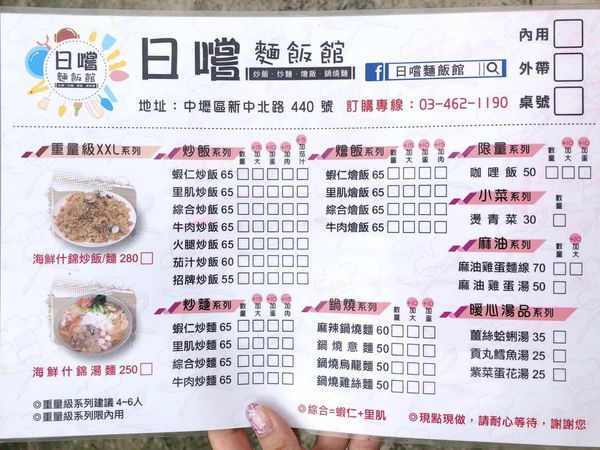 日嚐
麵飯館
日嚐 麵飯館
炒飯 · 炒麵 · 燴飯 · 鍋燒麵
f 日嚐麵飯館
內用
外帶
桌號
地址：中壢區新中北路 440 號 訂購專線：03-462-1190
重量級XXL系列
海鮮什錦炒飯/麵 280
海鮮什錦湯麵 250
◎重量級系列建議 4~6人
◎重量級系列限內用
炒飯系列 數量 +15加大 +10加蛋 +15加肉 +5加茄汁
蝦仁炒飯 65
里肌炒飯 65
綜合炒飯 65
牛肉炒飯 65
火腿炒飯 65
茄汁炒飯 60
招牌炒飯 55
炒麵系列 數量 +15加大 +10加蛋 +15加肉
蝦仁炒麵 65
里肌炒麵 65
綜合炒麵 65
牛肉炒麵 65
燴飯系列 數量 +10加大 +10加蛋 +15加肉
蝦仁燴飯 65
里肌燴飯 65
綜合燴飯 65
牛肉燴飯 65
鍋燒系列 數量 +10加大 +10加蛋
麻辣鍋燒麵 60
鍋燒意麵 50
鍋燒烏龍麵 50
鍋燒雞絲麵 50
◎綜合=蝦仁+里肌
限量系列 數量 +10加大 +10加蛋
咖哩飯 50
小菜系列 數量
燙青菜 30
麻油系列 數量 +20加大
麻油雞蛋麵線 70
麻油雞蛋湯 50
暖心湯品系列 數量
薑絲蛤蜊湯 35
貢丸鱈魚湯 25
紫菜蛋花湯 25
◎現點現做，請耐心等待，謝謝您